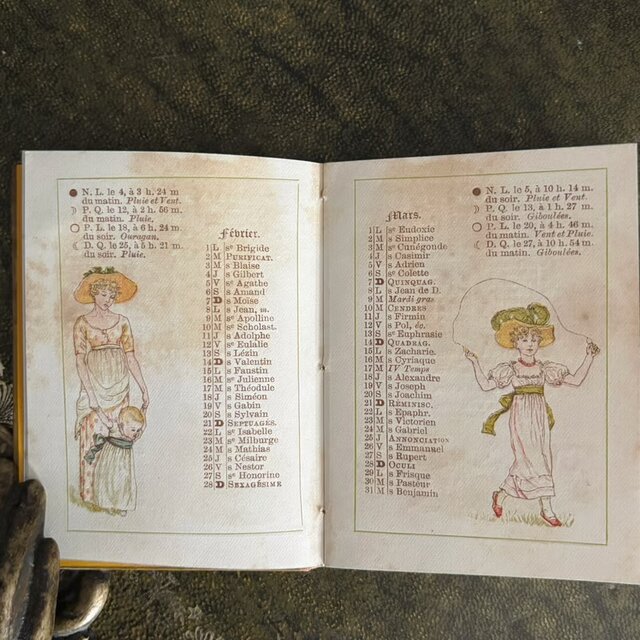 N. L. le 4, à 3 h. 24 m
du matin. Pluie et Vent.
P. Q. le 12, à 2 h. 56 m.
du matin. Pluie.
P. L. le 18, à 6 h. 24 m.
du soir. Ouragan.
D. Q. le 25, à 5 h. 21 m.
du soir. Pluie.
Février.
1 L sᵉ Brigide
2 M PURIFICAT.
3 M s Blaise
4 J s Gilbert
5 V sᵉ Agathe
6 S s Amand
7 D s Moise
8 L s Jean, m.
9 M sᵉ Apolline
10 M sᵉ Scholast.
11 J s Adolphe
12 V sᵉ Eulalie
13 S s Lézin
14 D s Valentin
15 L s Faustin
16 M sᵉ Julienne
17 M s Théodule
18 J s Siméon
19 V s Gabin
20 S s Sylvain
21 D SEPTUAGÉS.
22 L sᵉ Isabelle
23 M sᵉ Milburge
24 M s Mathias
25 J s Césaire
26 V s Nestor
27 S sᵉ Honorine
28 D SEXAGÉSIME
N. L. le 5, à 10 h. 14 m.
du soir. Pluie et Vent.
P. Q. le 13, à 1 h. 27 m.
du soir. Giboulées.
P. L. le 20, à 4 h. 46 m.
du matin. Vent et Pluie.
D. Q. le 27, à 10 h. 54 m.
du matin. Giboulées.
Mars.
1 L sᵉ Eudoxie
2 M s Simplice
3 M sᵉ Cunégonde
4 J s Casimir
5 V s Adrien
6 S sᵉ Colette
7 D QUINQUAG.
8 L s Jean de D.
9 M Mardi gras
10 M CENDRES
11 J s Firmin
12 V s Pol, év.
13 S sᵉ Euphrasie
14 D QUADRAG.
15 L s Zacharie.
16 M s Cyriaque
17 M IV Temps
18 J s Alexandre
19 V s Joseph
20 S s Joachim
21 D RÉMINISC.
22 L s Epaphr.
23 M s Victorien
24 M s Gabriel
25 J ANNONCIATION
26 V s Emmanuel
27 S s Rupert
28 D OCULI
29 L s Frisque
30 M s Pasteur
31 M s Benjamin